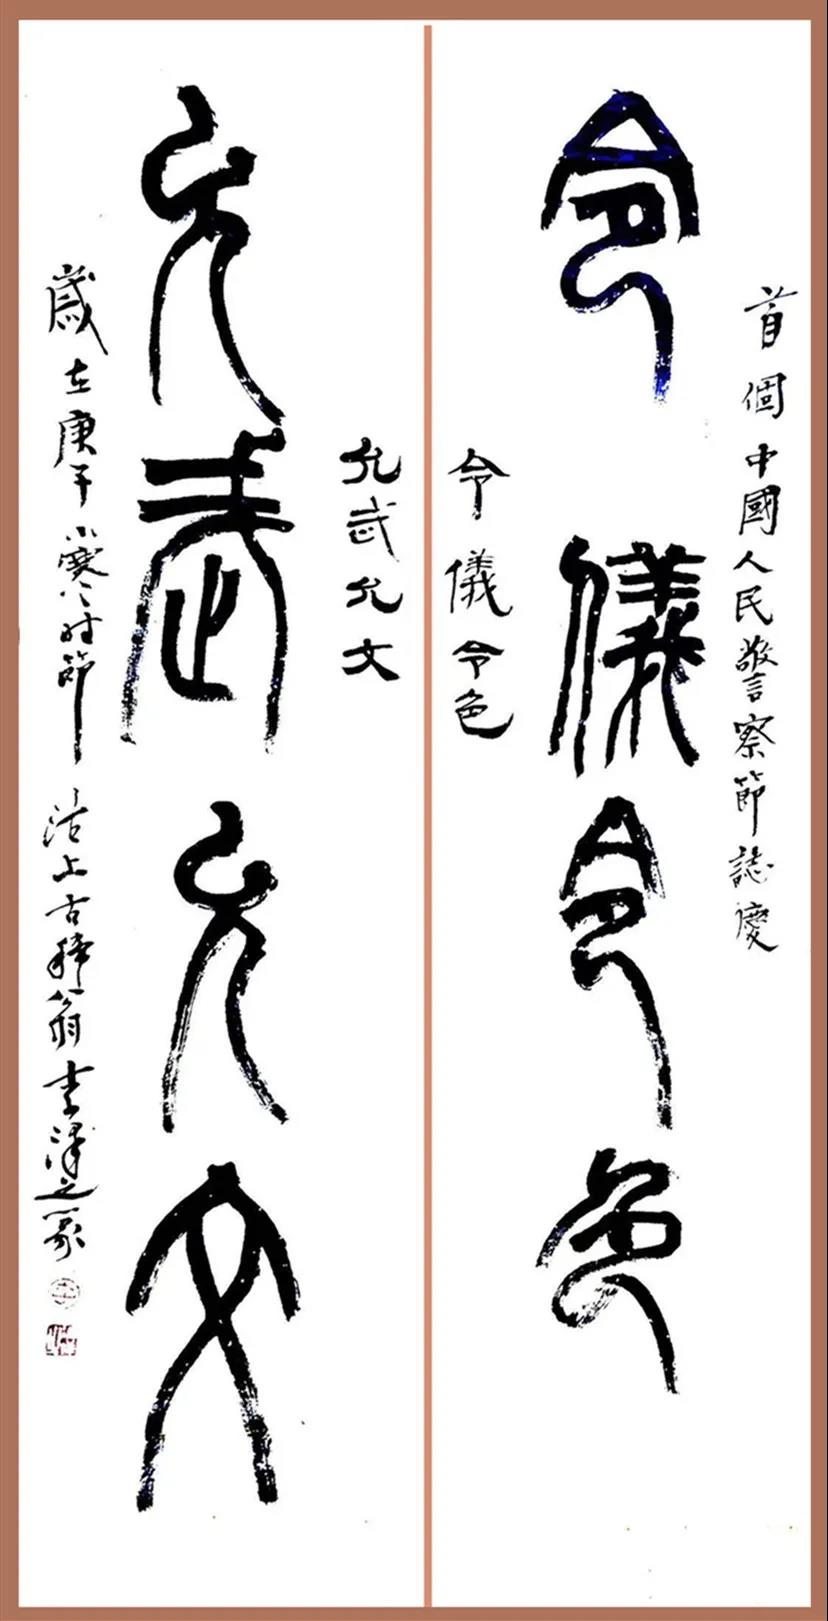 首個中國人民警察節誌慶
令儀令色
令儀令色
允武允文
允武允文
歲在庚子小寒時節
沽上古稀翁李澤之篆